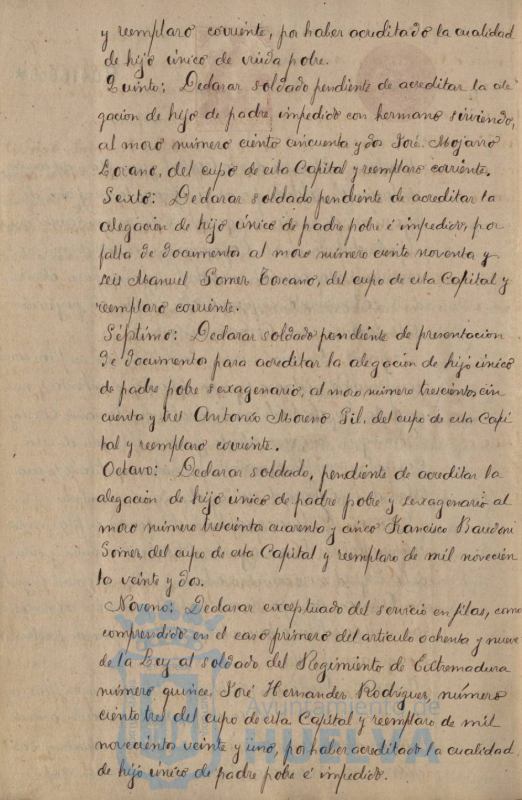 y reemplazo corriente, por haber acreditado la cualidad
de hijo único de viuda pobre.
Quinto: Declarar soldado pendiente de acreditar la ale-
gación de hijo de padre impedido con hermano sirviendo,
al mozo número ciento cincuenta y dos José Mojarro
Lozano, del cupo de esta Capital y reemplazo corriente.
Sexto: Declarar soldado pendiente de acreditar la
alegación de hijo único de padre pobre é impedido, por
falta de documentos al mozo número ciento noventa y
seis Manuel Gomez Toscano, del cupo de esta Capital y
reemplazo corriente.
Séptimo: Declarar soldado pendiente de presentación
de documentos para acreditar la alegación de hijo único
de padre pobre sexagenario, al mozo número trescientos cin
cuenta y tres Antonio Moreno Gil, del cupo de esta Capi
tal y reemplazo corriente.
Octavo: Declarar soldado, pendiente de acreditar la
alegación de hijo único de padre pobre y sexagenario al
mozo número trescientos cuarenta y cinco Francisco
Gomez del cupo de esta Capital y reemplazo de mil novecien
to veinte y dos.
Noveno: Declarar exceptuado del servicio en filas, como
comprendido en el caso primero del artículo ochenta y nueve
de la Ley al soldado del Regimiento de Extremadura
número quince, José Hernandez Rodríguez, número
ciento tres del cupo de esta Capital y reemplazo de mil
novecientos veinte y uno, por haber acreditado la cualidad
de hijo único de padre pobre é impedido.
Ayuntamiento de
HUELVA